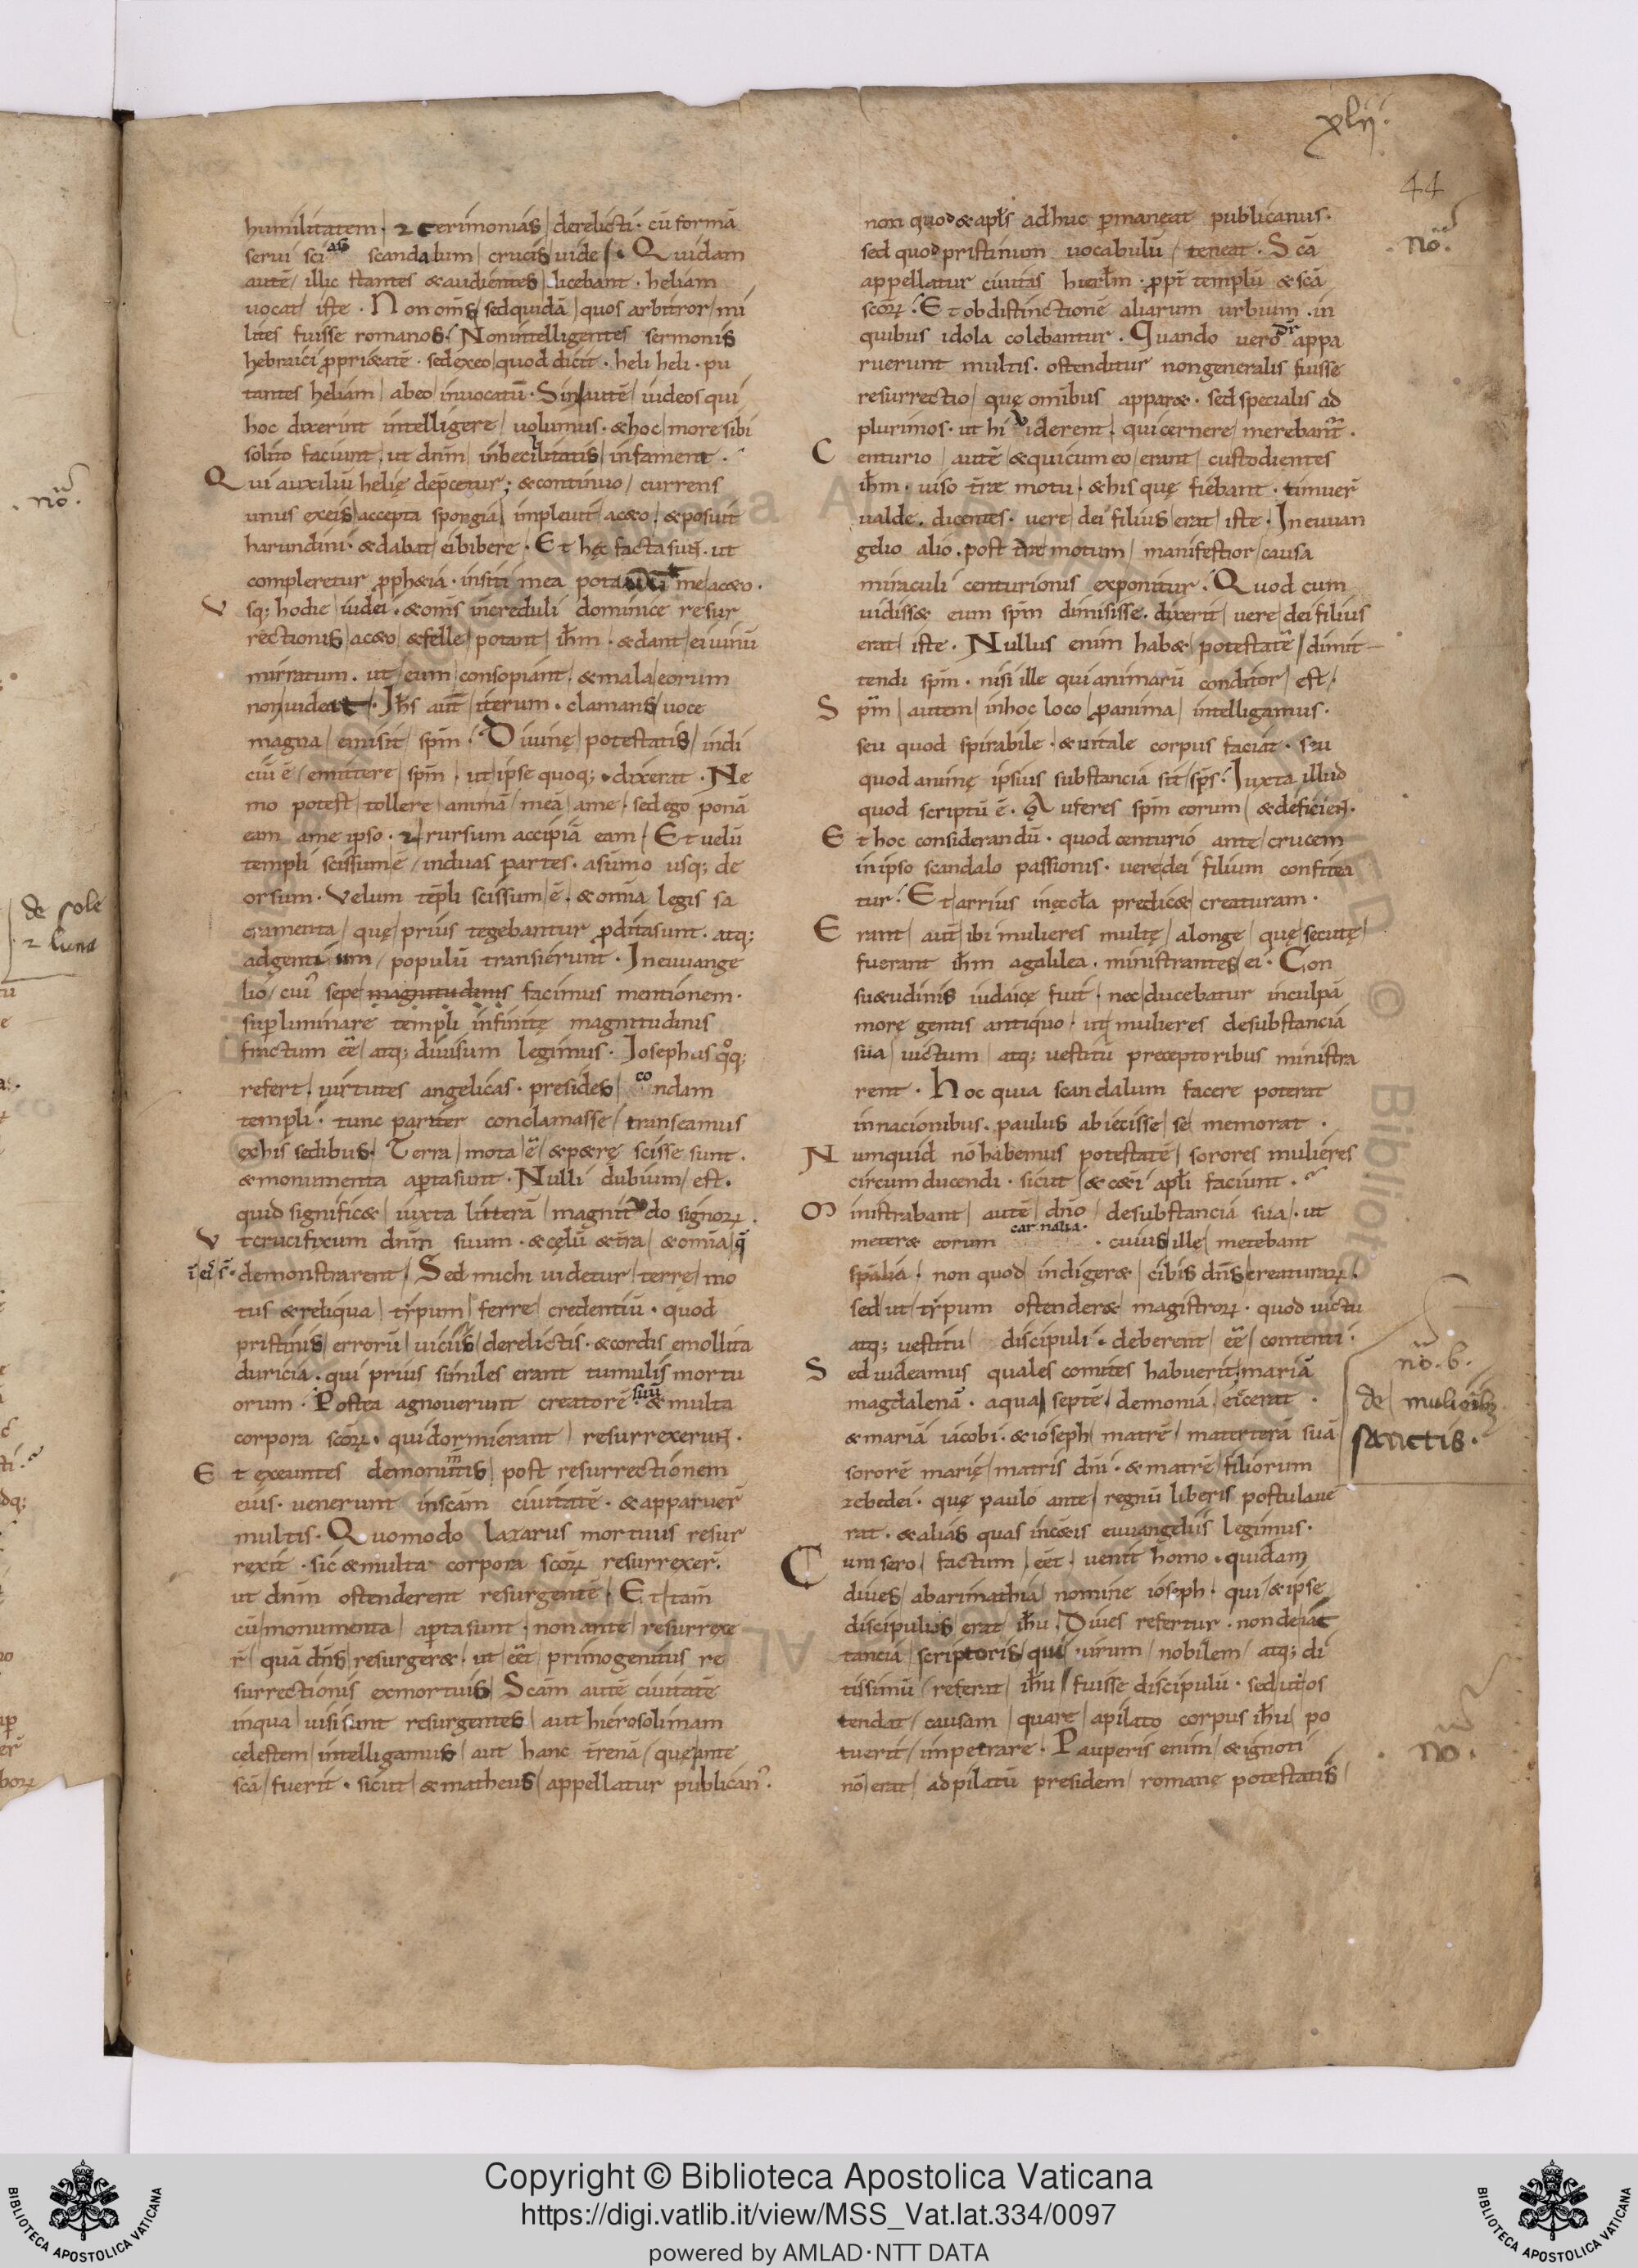 xlij.
44
humilitatem · ⁊ cerimonias derelicti · cū formā
serui scias scandalum crucis uide · Quidam
autē illic stantes & audientes dicebant · heliam
uocat iste · Non om̄s sed quidā quos arbitror mi
lites fuisse romanos · Non intelligentes sermonis
hebraici ꝓpri&atē · sed ex eo quod dicit · heli heli · pu
tantes heliam ab eo inuocatū · Sin autē iudeos qui
hoc dixerint intelligere uolumus · & hoc more sibi
solito faciunt ut dn̄m inbecillitatis infament ·
Qui auxiliū helię dep̄cetur ; & continuo currens
unus ex eis accepta spongiā impleuit ac&o · & posuit
harundini · & dabat ei bibere · Et hęc facta sun̄t · ut
compleretur ꝓph&ia · in siti mea pota me ac&o ·
Vsq; hodie iudei · & om̄s increduli dominice resur
rectionis ac&o & felle potant ih̄m · & dant ei uinū
mirratum · ut eum consopiant · & mala eorum
non uideat · Ih̄s aūt iterum · clamans uoce
magna emisit sp̄m · Diuinę potestatis indi
ciū ē emittere sp̄m · ut ipse quoq; dixerat · Ne
mo potest tollere animā meā a me · sed ego ponā
eam a me ipso · ⁊ rursum accipiā eam · Et uelū
templi scissum ē in duas partes · a sūmo usq; de
orsum · Velum tēpli scissum ē · & omnia legis sa
cramenta quę prius tegebantur ꝓdita sunt · atq;
ad gentium populū transierunt · In euuange
lio cui᾿ sepe magnitudinis facimus mentionem ·
supliminare templi infinitę magnitudinis
fractum ēē atq; diuisum legimus · Iosephus qͦq;
refert uirtutes angelicas · presides condam
templi · tunc pariter conclamasse transeamus
ex his sedibus · Terra mota ē & p&rę scisse sunt ·
& monumenta aꝑta sunt · Nulli dubium est ·
quid signific& iuxta litterā magnitudo signoꝝ ·
Vt crucifixum dn̄m suum · & cęlū & t̄ra & omīa q̄
ī eis̄ · demonstrarent · Sed michi uidetur terrę mo
tus & reliqua tẏpum ferre credentiū · quod
pristinis errorū uiciis derelictis · & cordis emollita
duricia · qui prius similes erant tumulis mortu
orum · Postea agnouerunt creatorē suū & multa
corpora scōꝝ · qui dormierant resurrexerun̄t ·
Et exeuntes de monumtis post resurrectionem
eius · uenerunt in scām ciuitatē · & apparuer̄
multis · Quomodo lazarus mortuus resur
rexit · sic & multa corpora scōꝝ resurrexer̄ ·
ut dn̄m ostenderent resurgentē · Et tam̄
cū monumenta aꝑta sunt · non ante resurrexe
r̄ quā dn̄s resurger& · ut ēēt primogenitus re
surrectionis ex mortuis · Scām autē ciuitatē
in qua uisi sunt resurgentes aut hierosolimam
celestem intelligamus aut hanc t̄renā quę ante
scā fuerit · sicut & matheus appellatur publican᾿ ·
non quod & apl̄s adhuc ꝑmaneat publicanus ·
sed quod pristinum uocabulū teneat · Scā
appellatur ciuitas hierl̄m · ꝓpt̄ templū & scā
scōꝝ · Et ob distinctionē aliarum urbium · in
quibus idola colebantur · Quando uero dr̄ appa
ruerunt multis · ostenditur non generalis fuisse
resurrectio quę omībus appar& · sed specialis ad
plurimos · ut hi uiderent qui cernere merebant̄ ·
Centurio autē & qui cum eo erant custodientes
ih̄m · uiso t̄ræ motu · & his quę fiebant · timuer̄
ualde · dicentes · uere dei filius erat iste · In euuan
gelio alio · post t̄ræ motum manifestior causa
miraculi centurionis exponitur · Quod cum
uidiss& eum sp̄m dimisisse · dixerit uere dei filius
erat iste · Nullus enim hab& potestatē dimit
tendi sp̄m · nisi ille qui animarū conditor est ·
Sp̄m autem in hoc loco ꝓ anima intelligamus ·
seu quod spirabile · & uitale corpus faciat · seu
quod animę ipsius substancia sit sp̄s · Iuxta illud
quod scriptū ē · Auferes sp̄m eorum & deficien̄t ·
Et hoc considerandū · quod centurio ante crucem
in ipso scandalo passionis · uere dei filium confitea
tur · Et arrius in ęccl̄a predic& creaturam ·
Erant aūt ibi mulieres multę a longe quę secutę
fuerant ih̄m a galilea · ministrantes ei · Con
su&udinis iudaicę fuit · nec ducebatur in culpā
more gentis antiquo · ut mulieres de substancia
sua uictum atq; uestitū preceptoribus ministra
rent · Hoc quia scandalum facere poterat
in nacionibus · paulus abiecisse se memorat ·
Numquid nō habemus potestatē sorores mulieres
circumducendi · sicut & c&eri apl̄i faciunt ·
Ministrabant autē dn̄o de substancia sua · ut
meter& eorum carnalia · cuius ille metebant
sp̄alia · non quod indiger& cibis dn̄s creaturaꝝ ·
sed ut tẏpum ostender& magistroꝝ · quod uictu
atq; uestitu discipuli · deberent ēē contenti ·
Sed uideamus quales comites habuerit · mariā
magdalenā · a qua septē demonia eicerat ·
& mariā iacobi · & ioseph matrē materterā suā
sororē marię matris dn̄i · & matrē filiorum
zebedei · quę paulo ante regnū liberis postulaue
rat · & alias quas in c&eris euuangeliis legimus ·
Cum sero factum ēēt · uenit homo · quidam
diues ab arimathia nomine ioseph · qui & ipse
discipulus erat ih̄u · Diues refertur · non de iac
tancia scriptoris qui uirum nobilem atq; di
tissimū referat ih̄u fuisse discipulū · sed ut os
tendat causam quare a pilato corpus ih̄u po
tuerit impetrare · Pauperis enim & ignoti
nō erat ad pilatū presidem romanę potestatis
nō ·
nō · b ·
de mulierib;
sanctis ·
nō ·
nō ·
de sole
⁊ luna
Copyright © Biblioteca Apostolica Vaticana
https://digi.vatlib.it/view/MSS_Vat.lat.334/0097
powered by AMLAD·NTT DATA
BIBLIOTECA APOSTOLICA VATICANA
BIBLIOTECA APOSTOLICA VATICANA